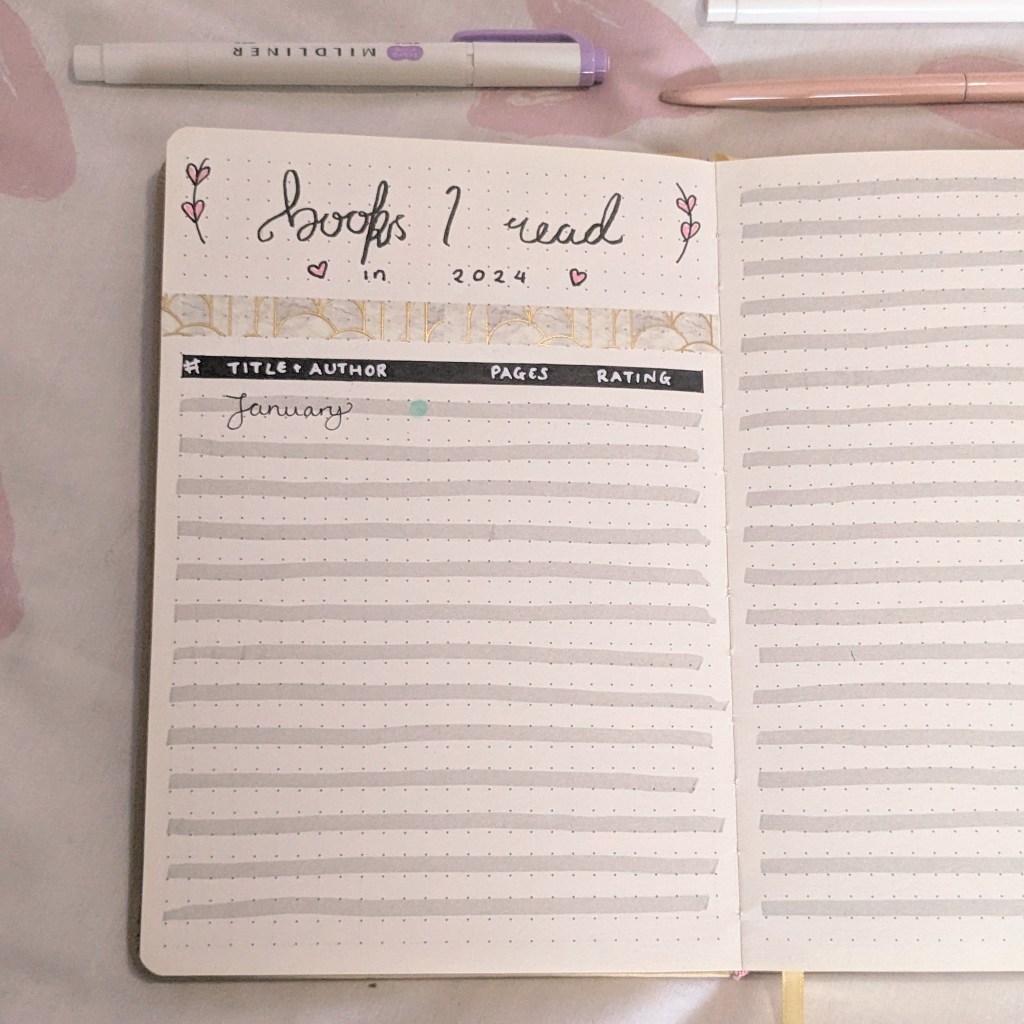 MILDLINER
books I read
in 2024
# TITLE + AUTHOR PAGES RATING
January